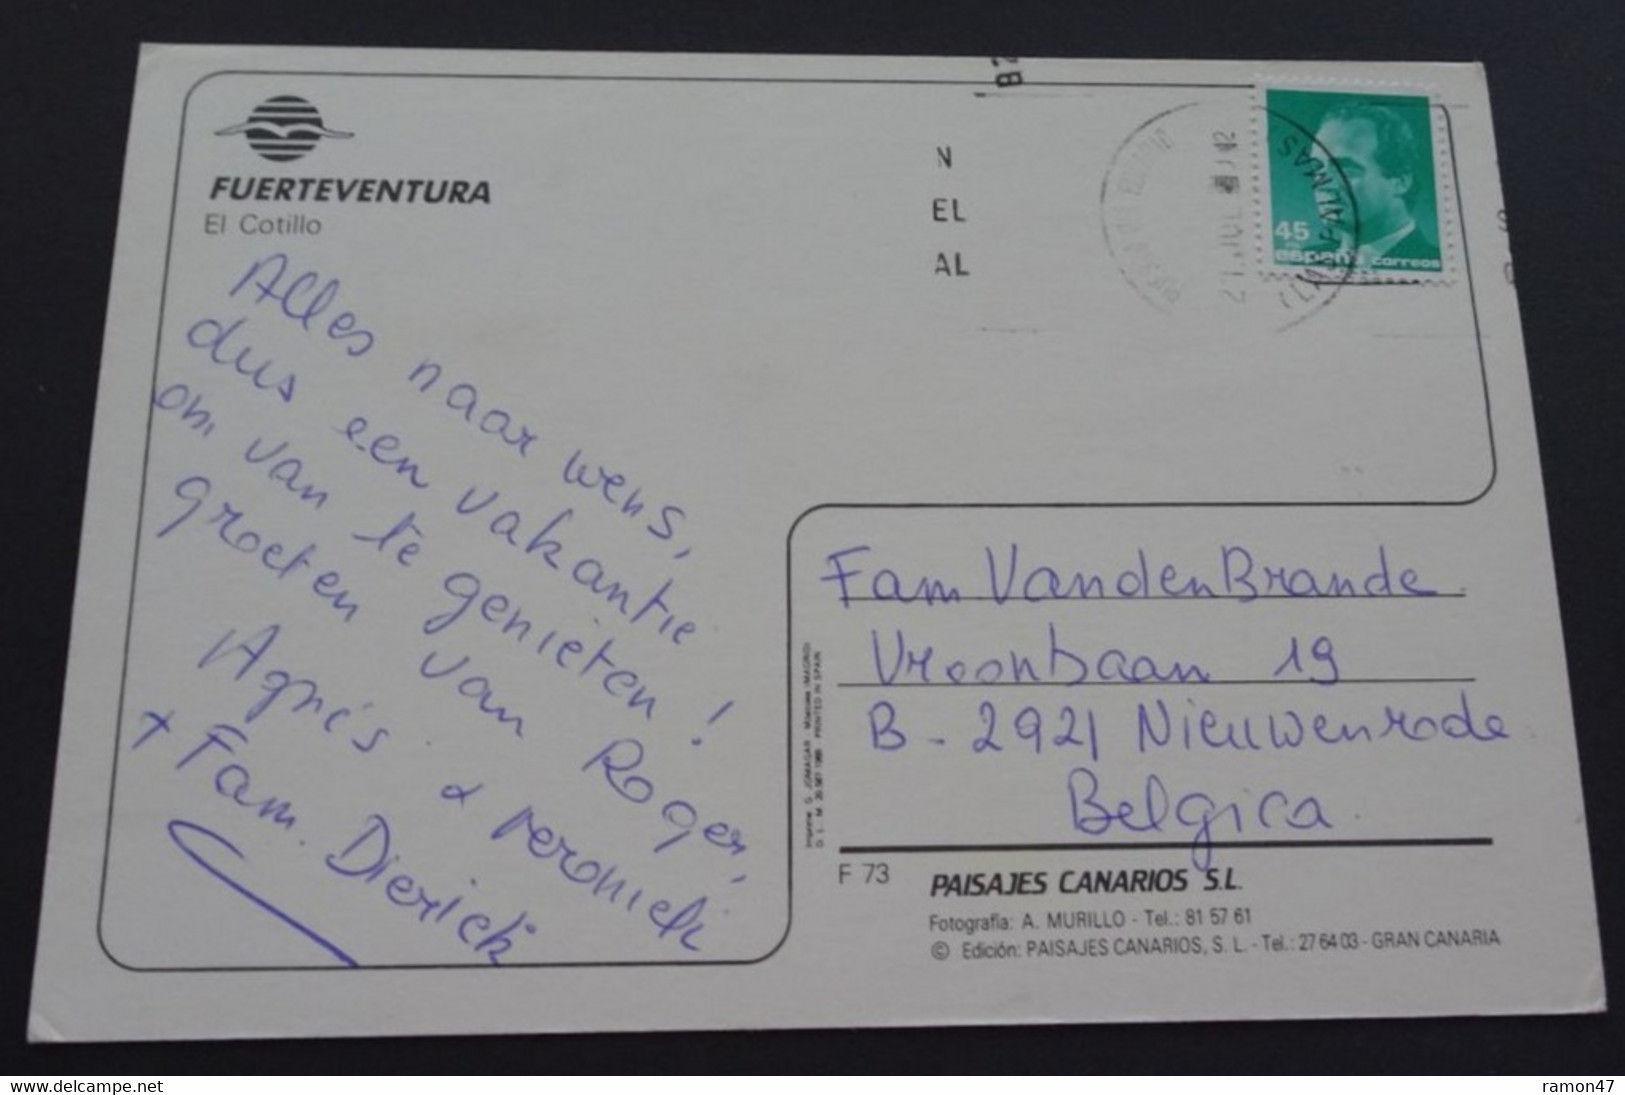 FUERTEVENTURA
El Cotillo
Alles naar wens,
dus een vakantie
om van te genieten!
groeten van Roger,
Agnès + Veroniek
+ Fam. Dierick
N
EL
AL
LAS PALMAS
45
españa correos
Fam Vanden Brande
Vroonbaan 19
B-2921 Nieuwenrode
Belgica.
F 73
PAISAJES CANARIOS S.L.
Fotografía: A. MURILLO - Tel.: 81 57 61
© Edición: PAISAJES CANARIOS, S. L. - Tel.: 27 64 03 - GRAN CANARIA
PRINTED IN SPAIN
www.delcampe.net
ramon47